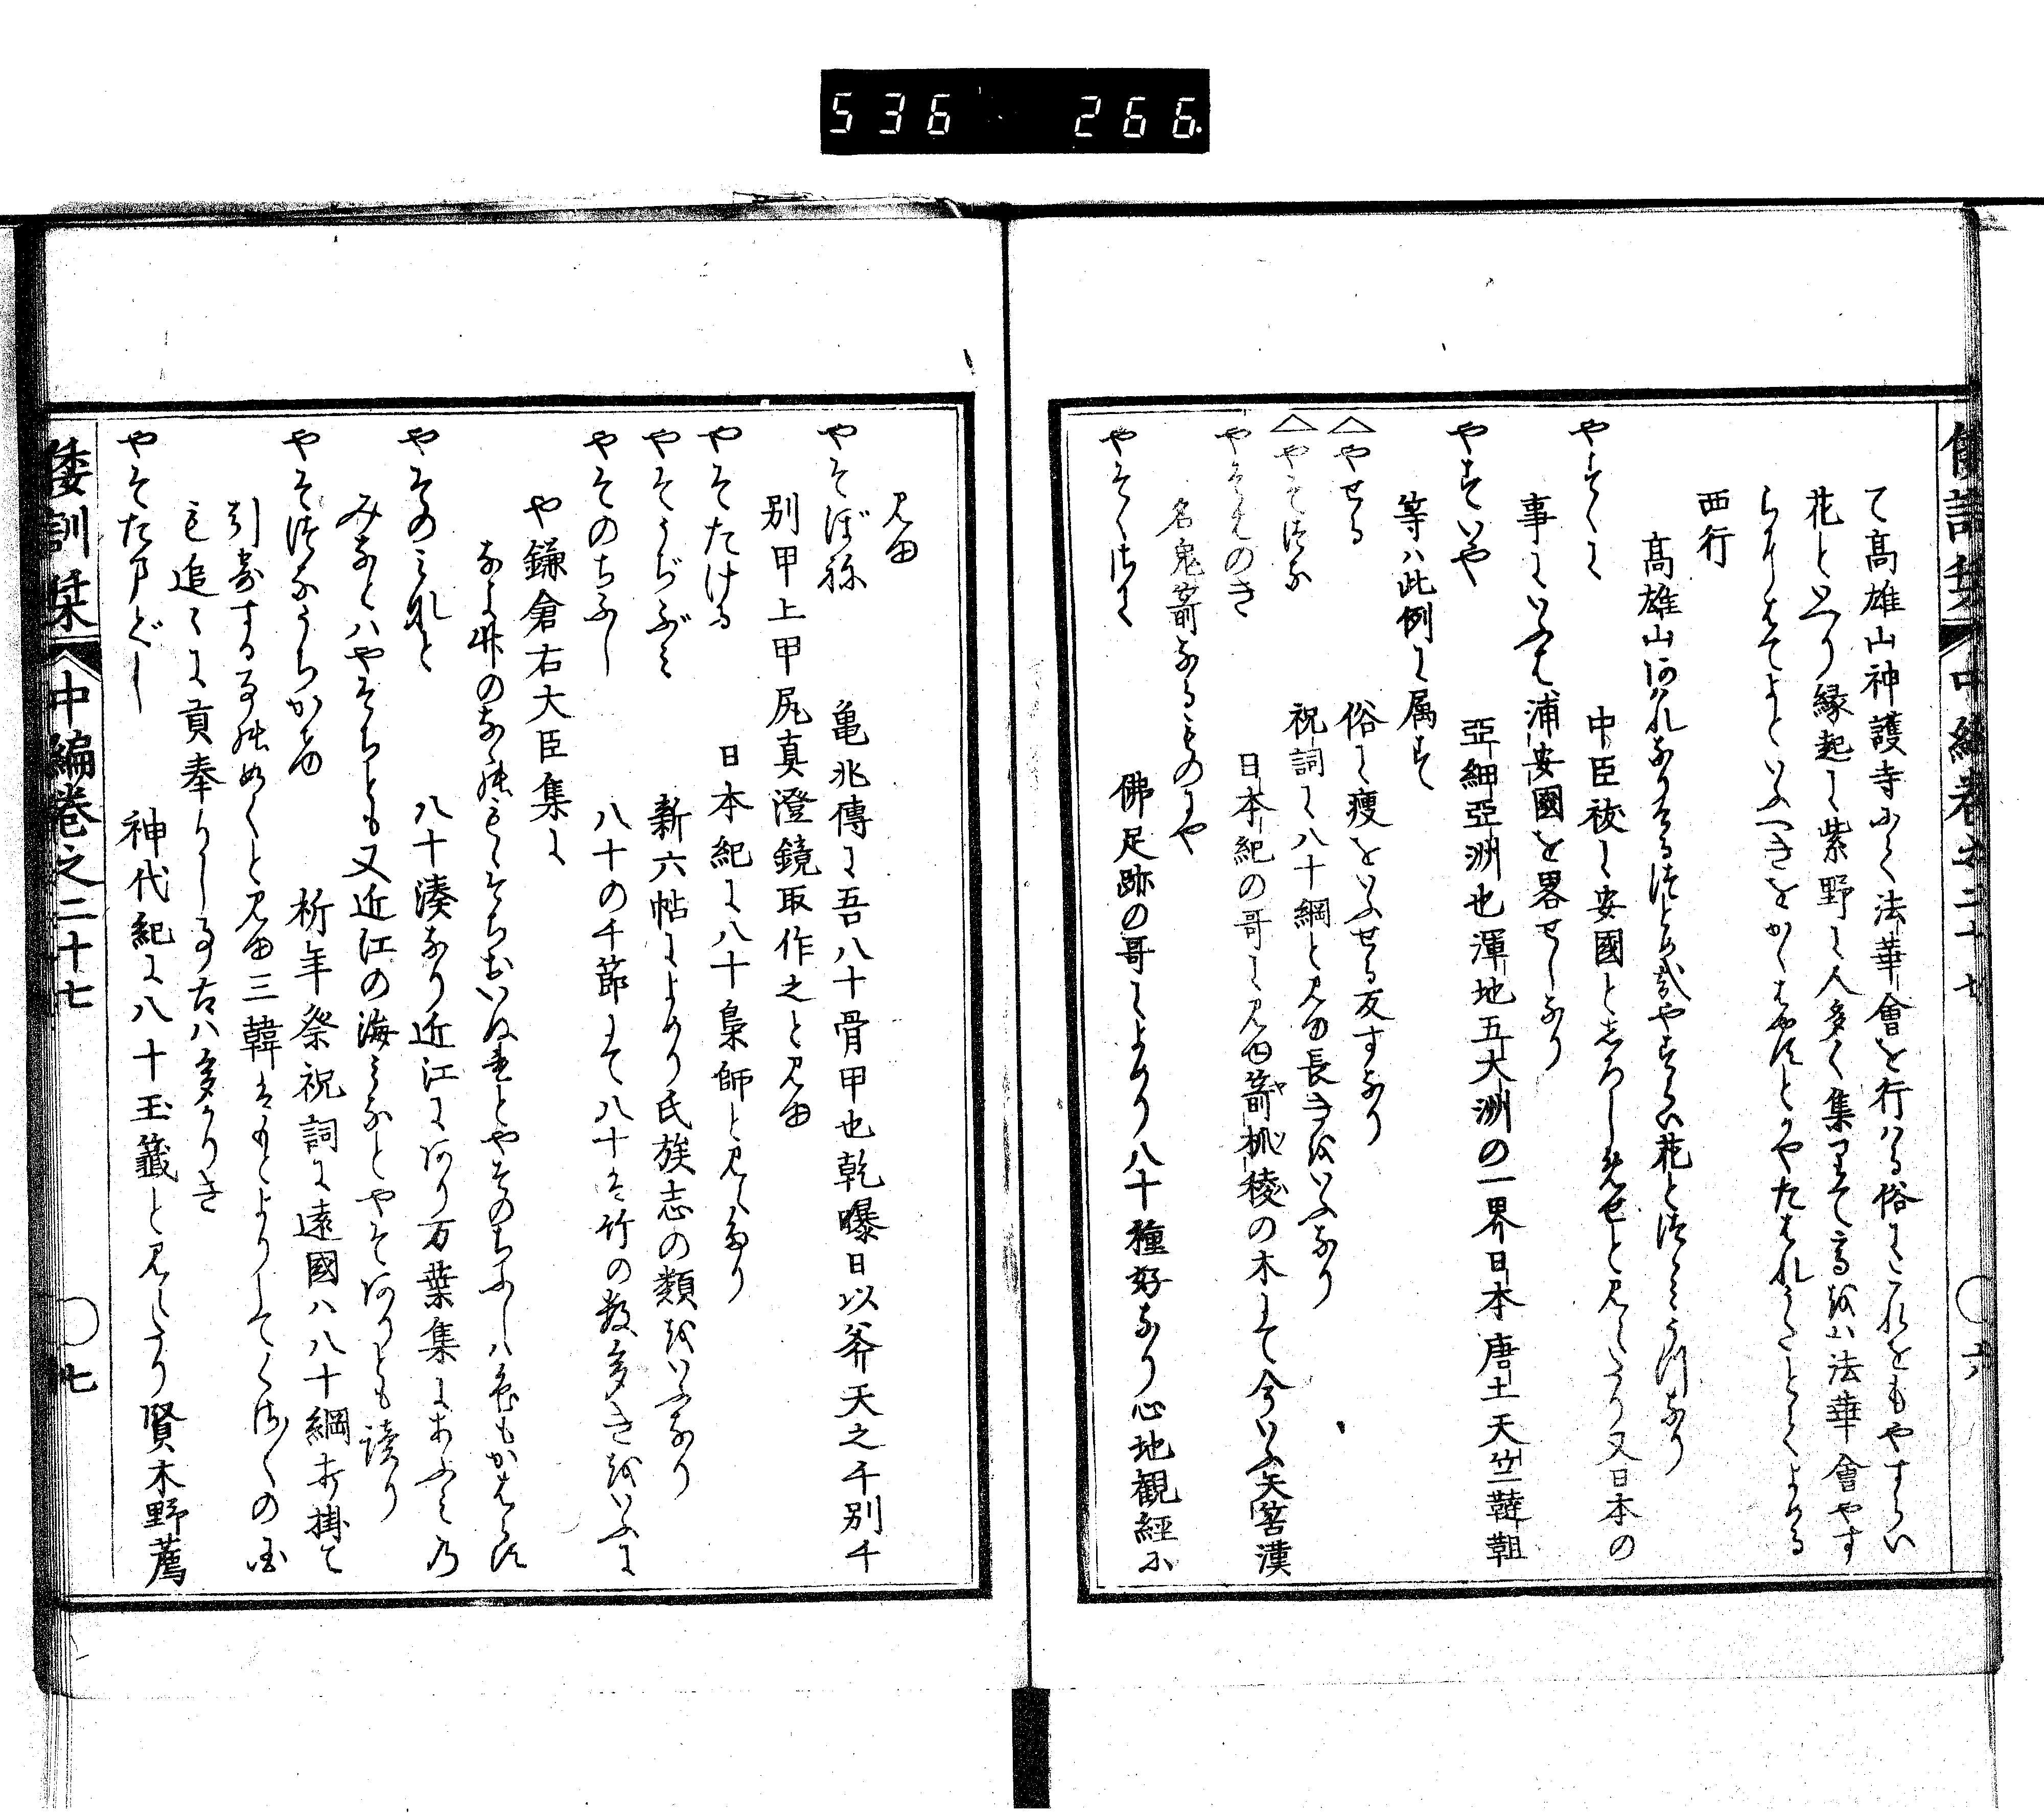 536 266
て高雄山神護寺にて法華會を行はる俗にこれをもやすらい
花といへり縁起に紫野に人多く集りて高雄法華會やす
らけはてよといふへきを
西行
高雄山あはれなりける つとめ哉やすらい花とつゝみうつなり
やすくに　中臣祓に安國としろしめせと見えたり又日本の
事にいふは浦安國を畧せしなり
やすいや　亞細亞洲也渾地五大洲の一界日本唐土天竺韃靼
等ハ此例に属す
△やせる　俗に瘦をいふせる反すなり
△やそつな　祝詞に八十綱と見ゆ長きをいふなり
やそはのき　日本紀の哥に見ゆ箭桃稜の木にて今いふ矢筈漢
名鬼箭なるものにや
やそくさに　佛足跡の哥によめり八十種好なり心地観經に
見ゆ
やそぼね　亀兆傳に吾八十骨甲也乾曝日以斧天之千别千
别甲上甲尻真澄鏡取作之と見ゆ
やそたける　日本紀に八十梟師と見えたり
やそうぢぶみ　新六帖によめり氏族志の類をいふなり
やそのちふし　八十の千節にて八十は竹の数多きをいふに
や鎌倉右大臣集に
なよ竹のなゝのもゝそちおいぬれとやそのちふしハ色もかはらす
やそのみなと　八十湊なり近江にあり万葉集にあふみの
みなとハやそちとも又近江の海みなとやそありとも讀り
やそつなうちかけ　祈年祭祝詞に遠國ハ八十綱打掛て
引寄する事の如くと見ゆ三韓はもとよりしてくさ〳〵の国
も追々に貢奉りし事古ハ多かりき
やそたまぐし　神代紀に八十玉籤と見えたり賢木野薦
倭訓栞 中編巻之二十七 ○ 七